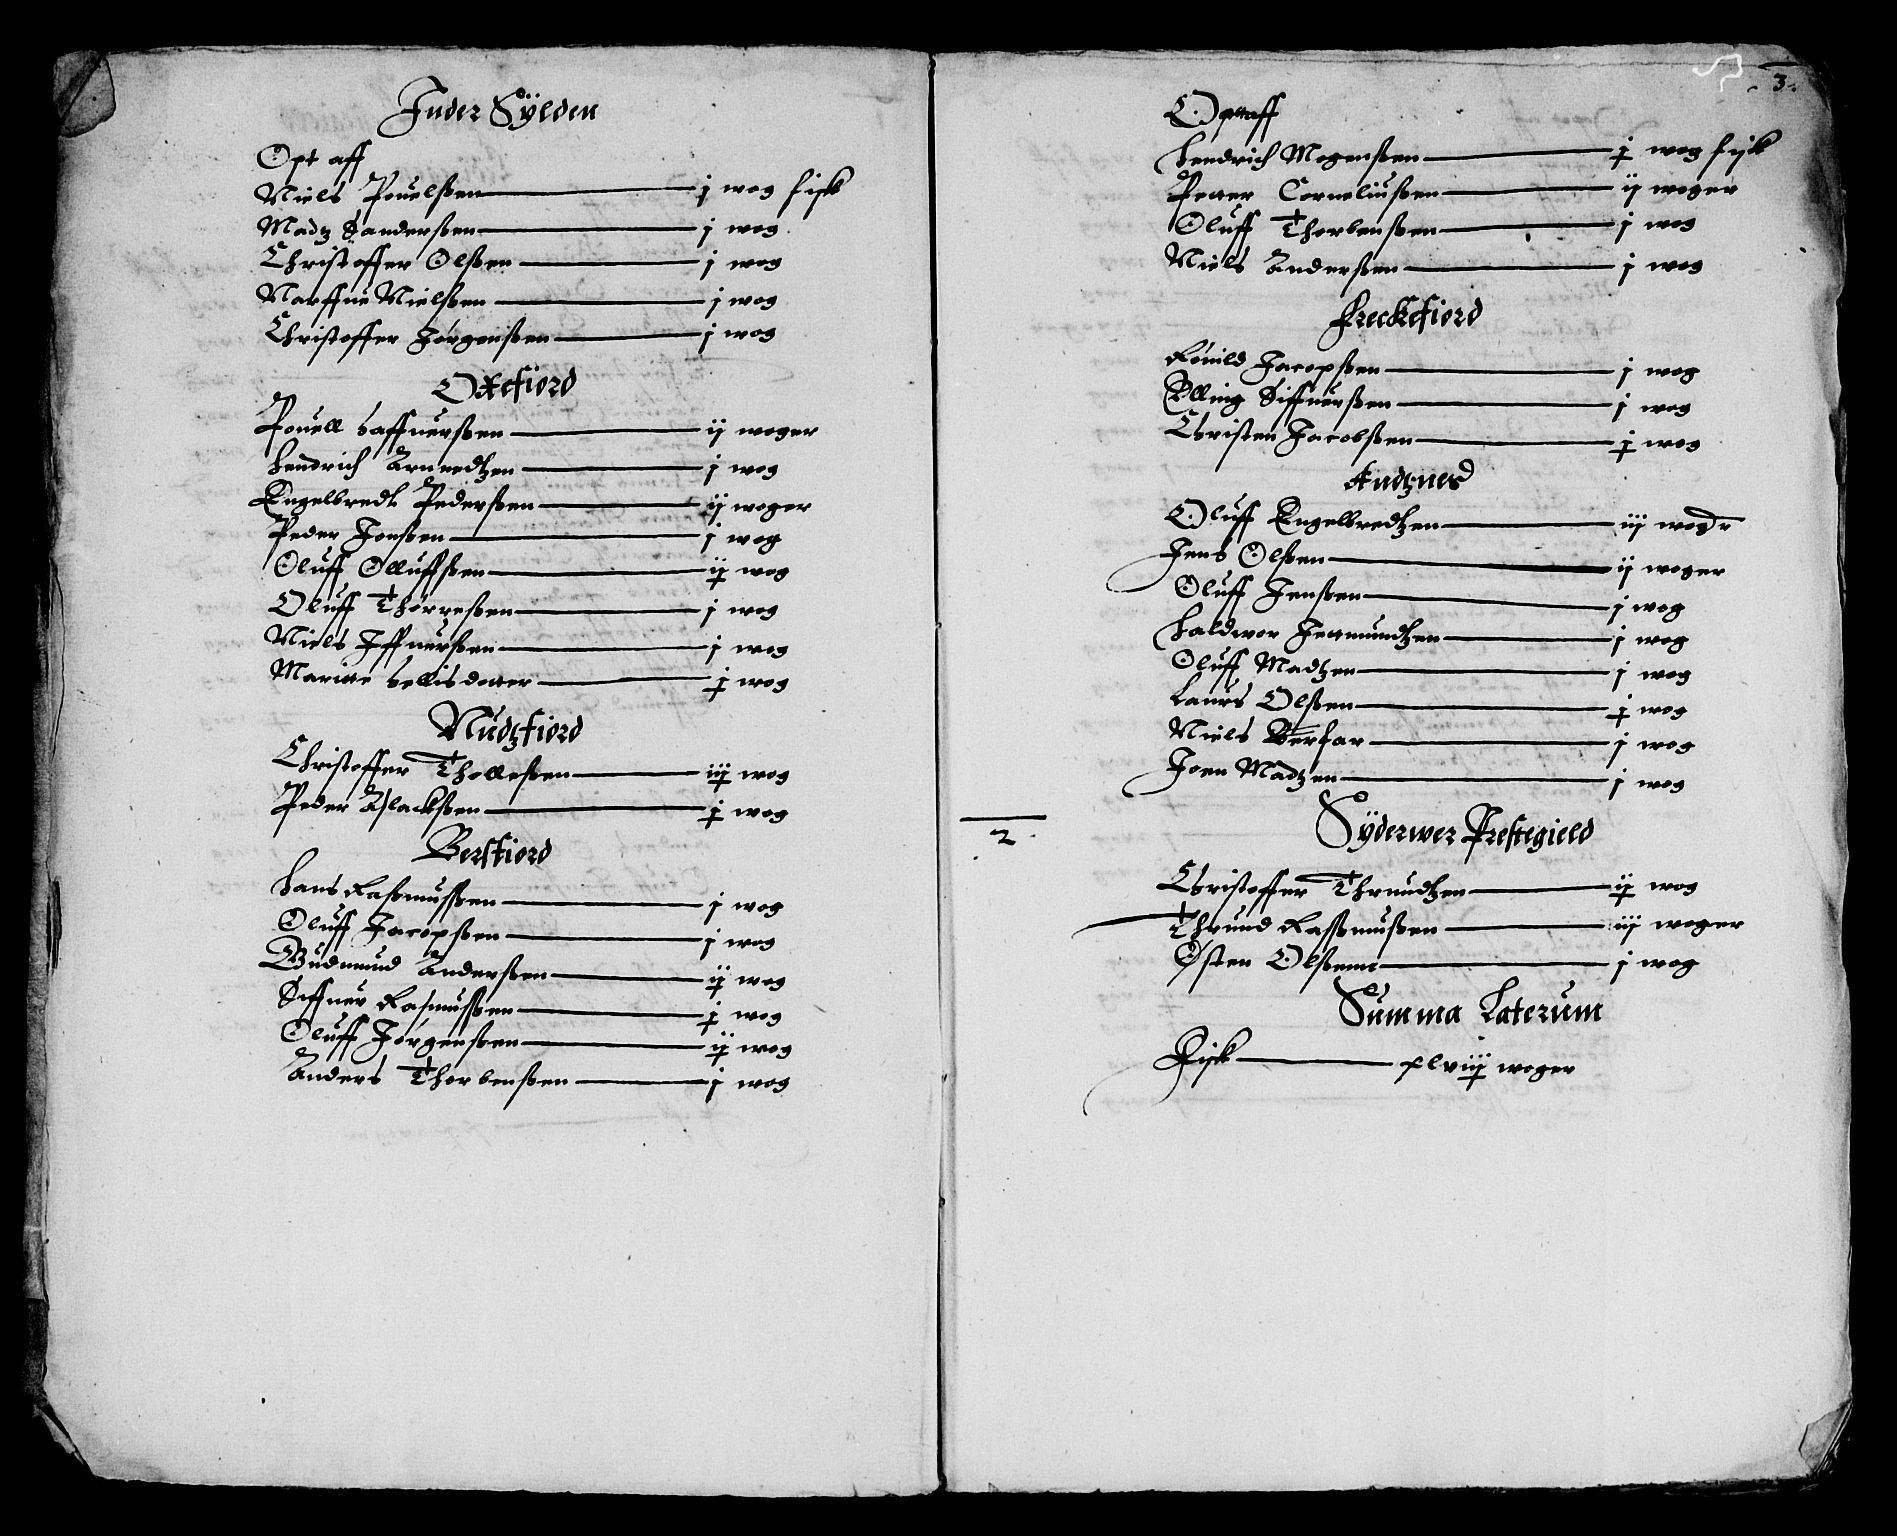 Inder Sÿlden
Opt aff
Niels Pouelßen j wog fisk
Madtz Sanderßen j wog
Christoffer Olßen j wog
Marffue Nielßen j wog
Christoffer Jørgenßen j wog
Oxefiord
Pouell Haffuerßen ij woger
Hendrich Arnnedtzen j wog
Engelbredt Pederßen ij woger
Peder Jonßen j wog
Oluff Olluffßen ij wog
Oluff Thørreßen j wog
Niels Iffuerßen j wog
Maritte Hellisdotter j wog
Nudtzfiord
Christoffer Tholleßen iij wog
Peder Aslackßen j wog
Bersfiord
Hans Raßmußen j wog
Oluff Jacopßen j wog
Gudmund Anderßen ij wog
Siffuer Rasmußen j wog
Oluff Jørgenßen ij wog
Anders Thorbenßen j wog
3
Opttaff
Hendrich Mogenßen j wog fisk
Petter Corneliußen ij woger
Oluff Thorbenßen j wog
Niels Anderßen j wog
Freckefiord
Jacopßen j wog
Elling Siffuerßen j wog
Christen Jacobßen j wog
Andtznes
Oluff Engelbredtzen iij woger
Jens Olßen ij woger
Oluff Jenßen j wog
Haldwor Jettmundtzen j wog
Oluff Madtzen j wog
Laurs Olßen j wog
Niels Berfar j wog
Joen Madtzen j wog
2
Sÿderwer Prestegield
Christoffer Thrundtzen ij wog
Thrund Raßmußen iij woger
Østen Olßenn j wog
Summa Laterum
Fisk xlviij woger